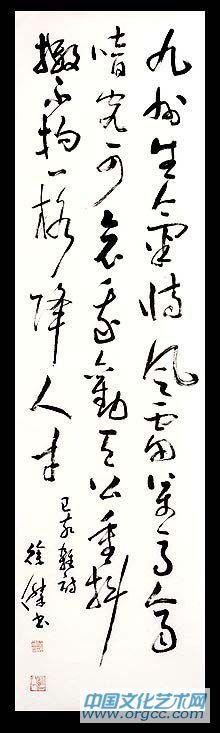 九州生氣恃風雷萬馬齊
喑究可哀我勸天公重抖
擻不拘一格降人才
己亥雜詩
徐傑书
中国文化艺术网
www.orgcc.com